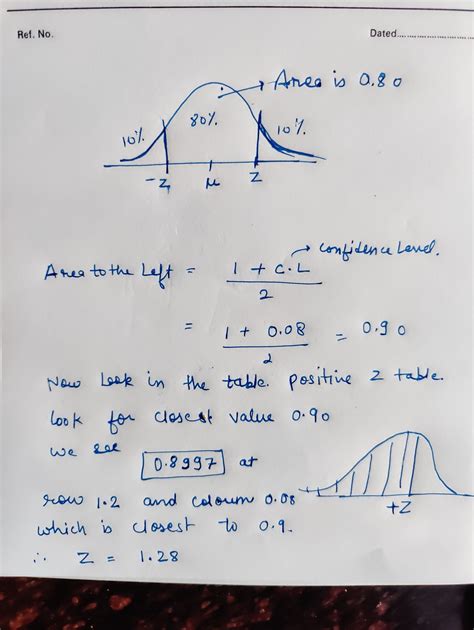 Ref. No. Dated........................
Area is 0.80
10% 80% 10%
-Z μ Z
confidence Level.
Area to the Left = 1 + C.L / 2
= 1 + 0.08 / 2 = 0.90
Now Look in the table. positive Z table.
look for closest value 0.90
we see 0.8997 at
row 1.2 and coloum 0.08
which is closest to 0.9.
+Z
∴ Z = 1.28